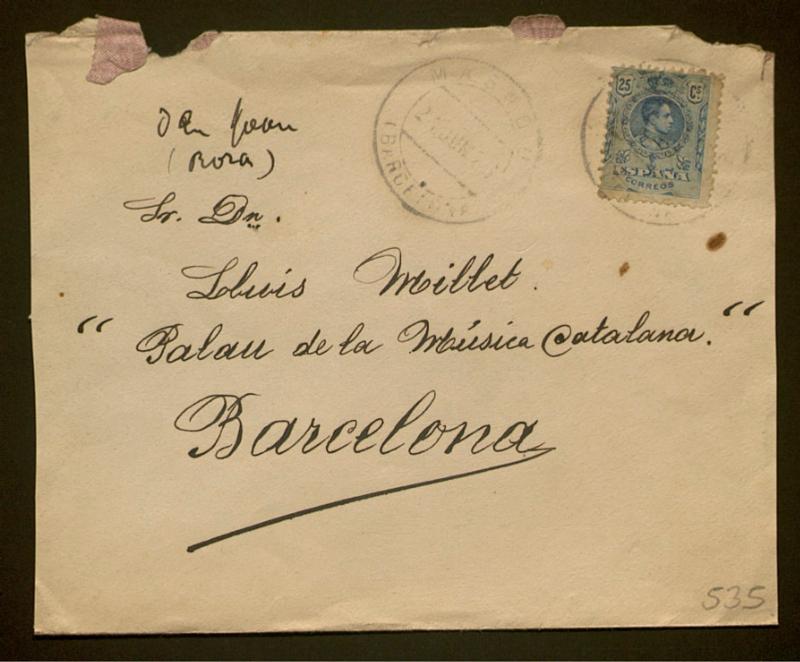 MASNOU
(BARCELONA)
25 Cs
ESPAÑA
CORREOS
(Rosa)
Sr. Dn.
Lluis Millet.
"Palau de la Música Catalana."
Barcelona
535